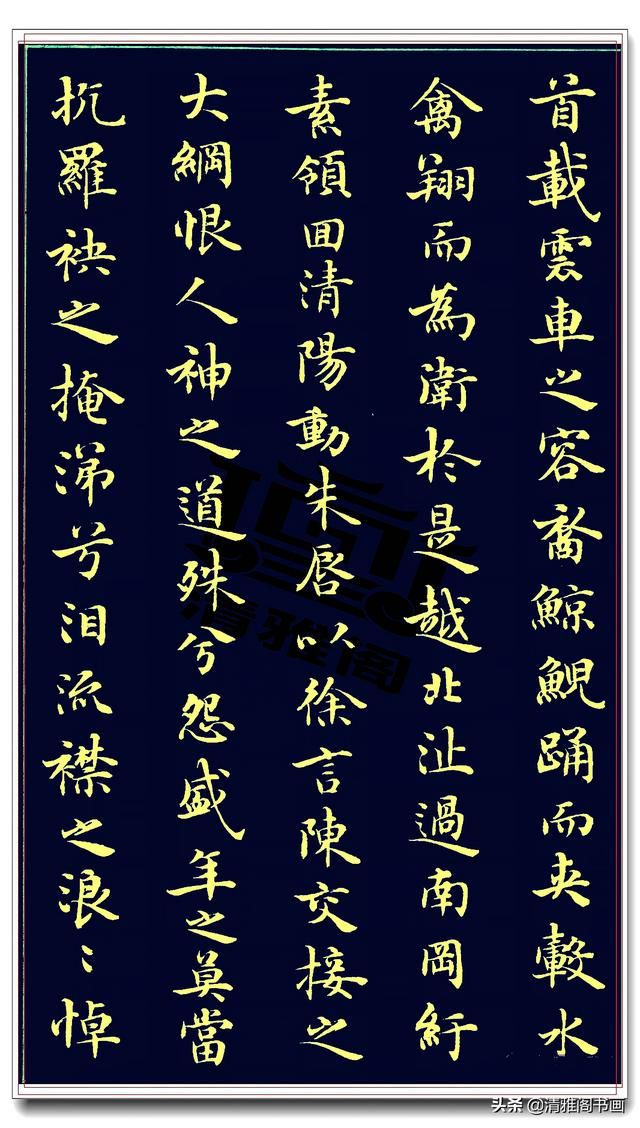 首載雲車之容裔鯨鯢踊而夾轂水
禽翔而為衛於是越北沚過南岡紆
素領囬清陽動朱唇以徐言陳交接之
大綱恨人神之道殊兮怨盛年之莫當
抗羅袂之掩涕兮泪流襟之浪〻悼
清雅阁
头条 @清雅阁书画